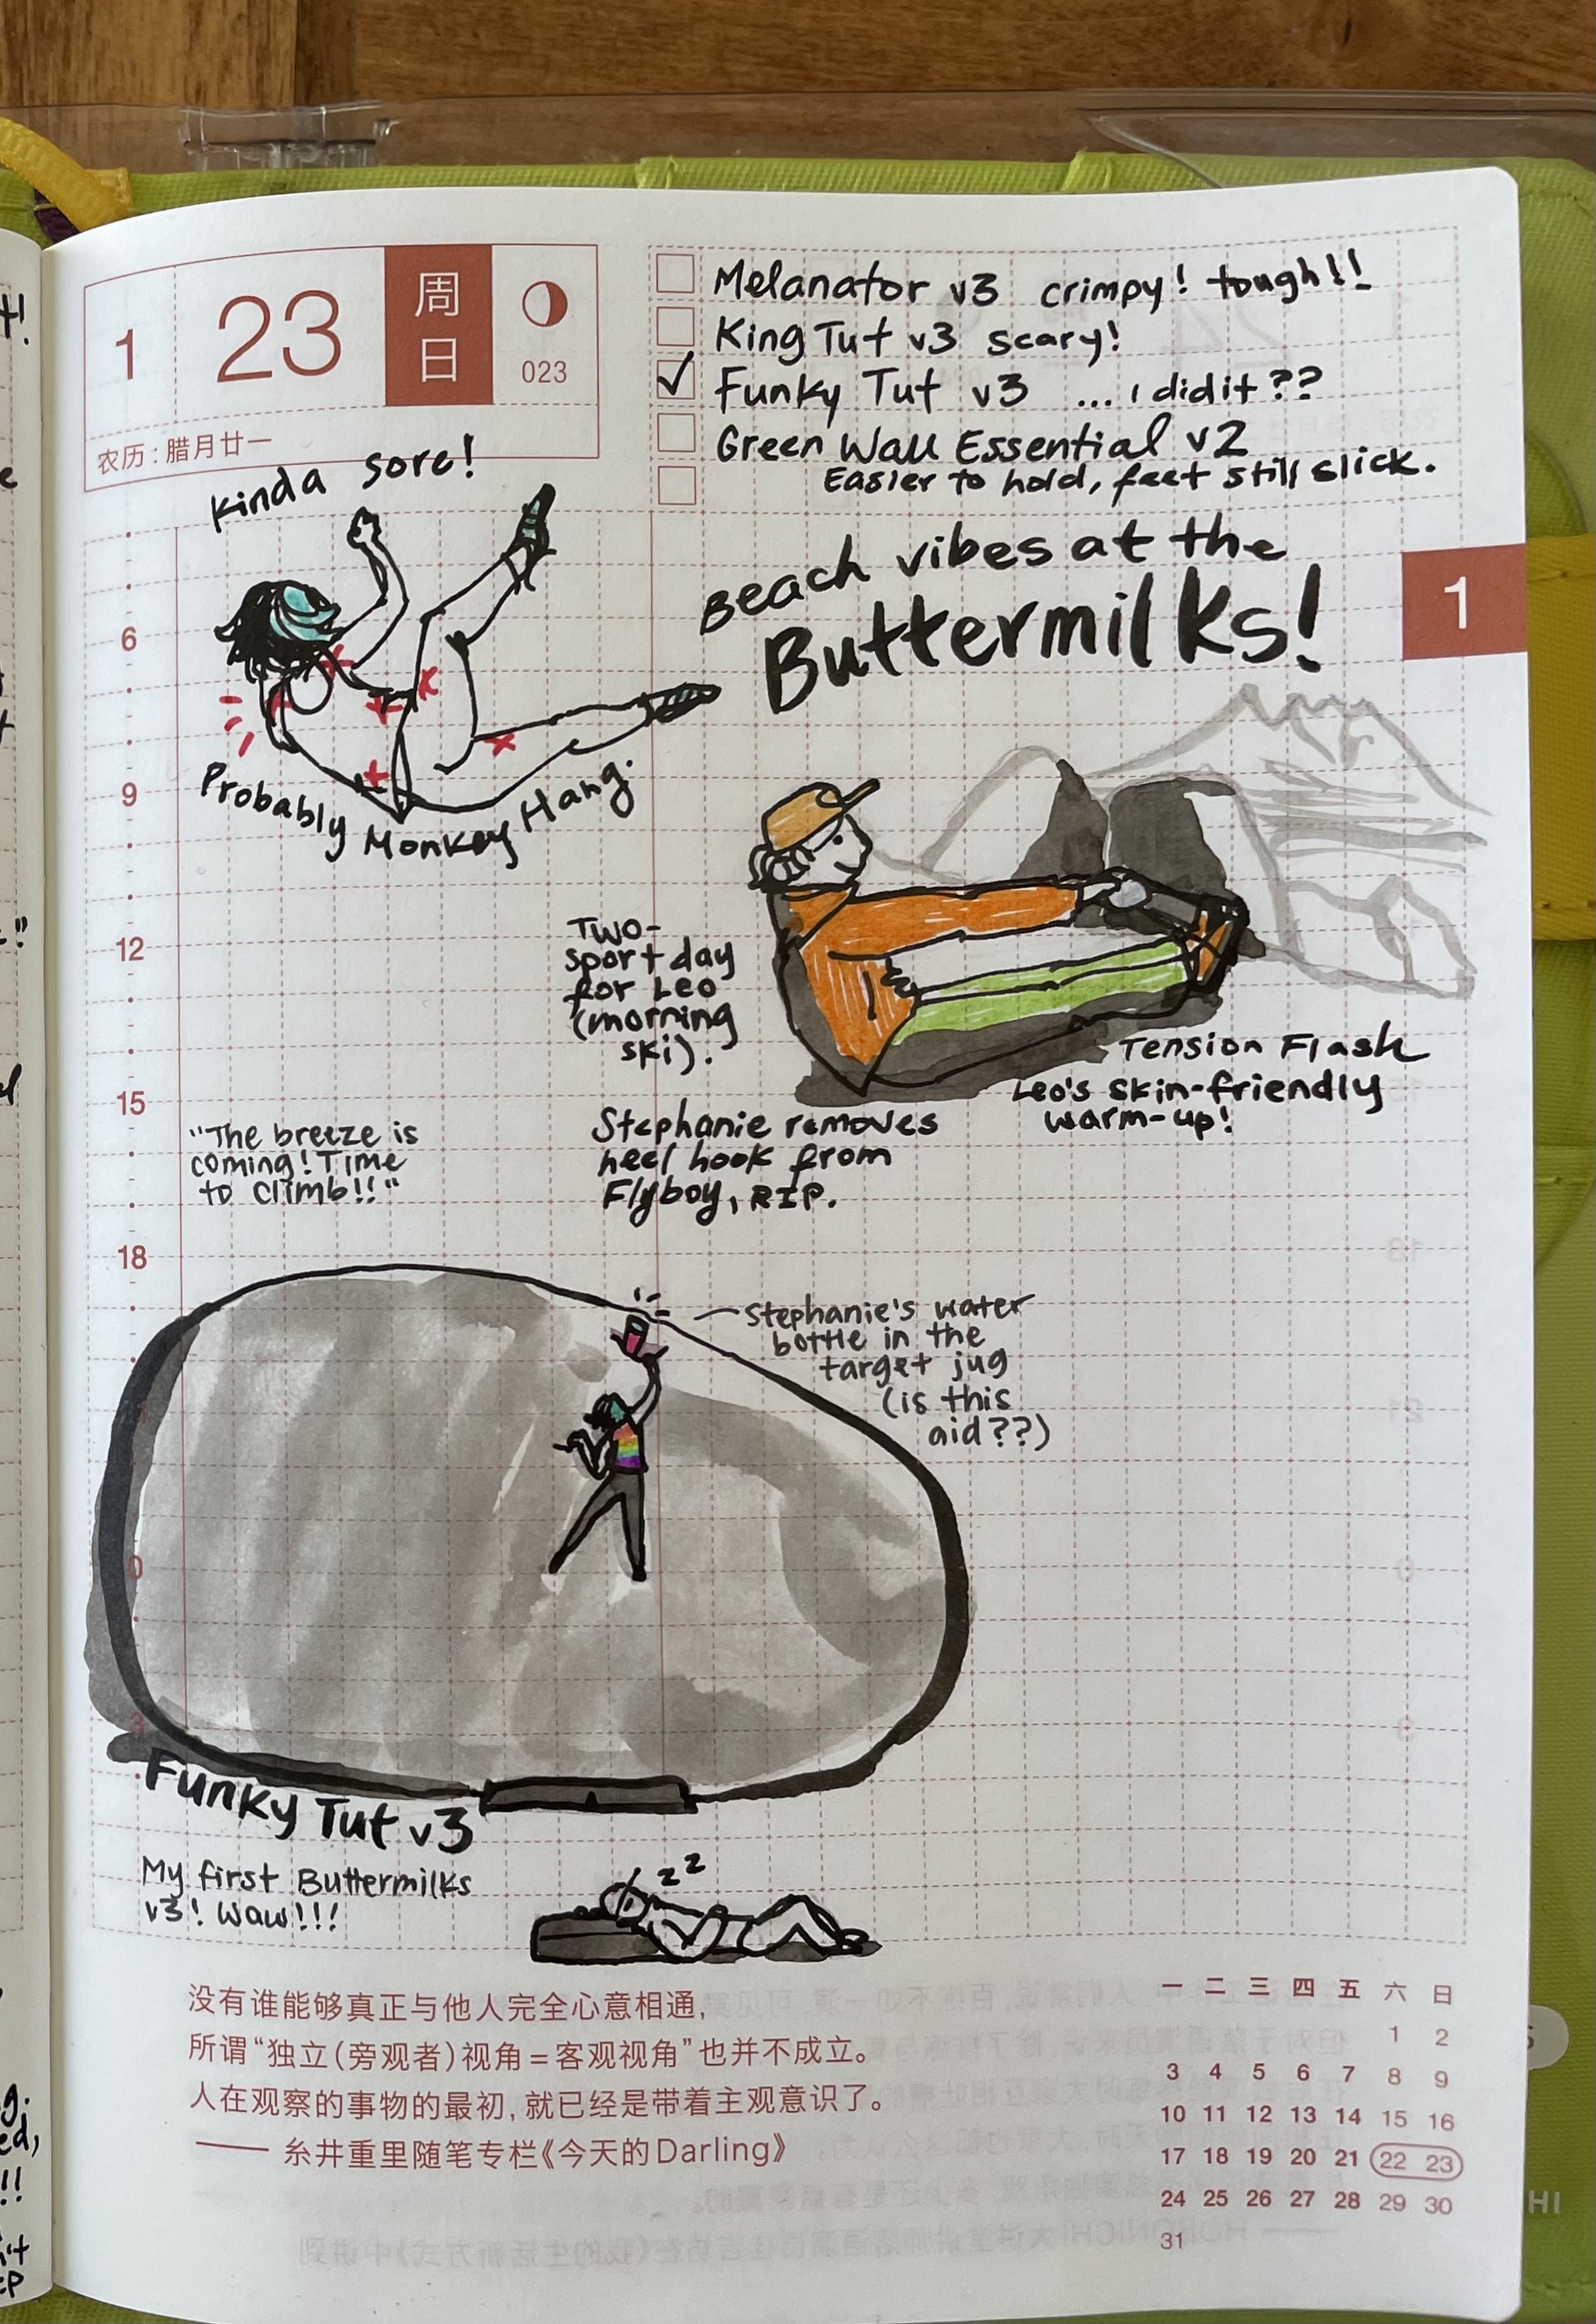 1
23
周
日
023
农历：腊月廿一
Melanator v3 crimpy! tough!!
King Tut v3 scary!
Funky Tut v3 ... i did it??
Green Wall Essential v2
Easier to hold, feet still slick.
Kinda sore!
Probably Monkey Hang.
Beach vibes at the
Buttermilks!
1
6
9
12
15
18
Two-
sport day
for Leo
(morning
ski).
Tension Flash
Leo's skin-friendly
warm-up!
"The breeze is
coming! Time
to climb!!"
Stephanie removes
heel hook from
Flyboy, RIP.
Stephanie's water
bottle in the
target jug
(is this
aid??)
0
3
Funky Tut v3
My first Buttermilks
v3! Waw!!!
z z
没有谁能够真正与他人完全心意相通，
所谓“独立（旁观者）视角=客观视角”也并不成立。
人在观察的事物的最初，就已经是带着主观意识了。
—— 糸井重里随笔专栏《今天的Darling》
一 二 三 四 五 六 日
1 2
3 4 5 6 7 8 9
10 11 12 13 14 15 16
17 18 19 20 21 22 23
24 25 26 27 28 29 30
31
HI